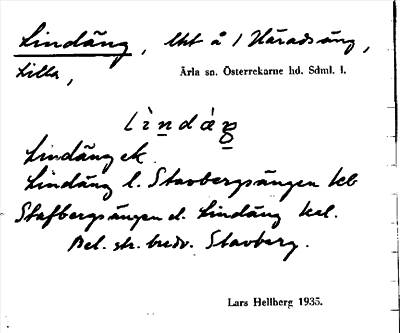 Lindäng, lht å / Häradsäng,
Lilla, Ärla sn. Österrekarne hd. Sdml. l.
lìndàŋ
Lindäng ek
Lindäng l. Stavbergsängen kb
Stafbergsängen el. Lindäng kel.
Bel. str. bredv. Stavberg.
Lars Hellberg 1935.